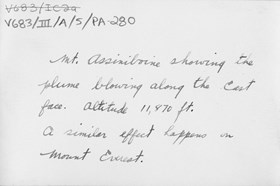 V683/IC29
V683/III/A/5/PA-280
Mt. Assiniboine showing the
plume blowing along the East
face. Altitude 11,870 ft.
A similar effect happens on
Mount Everest.